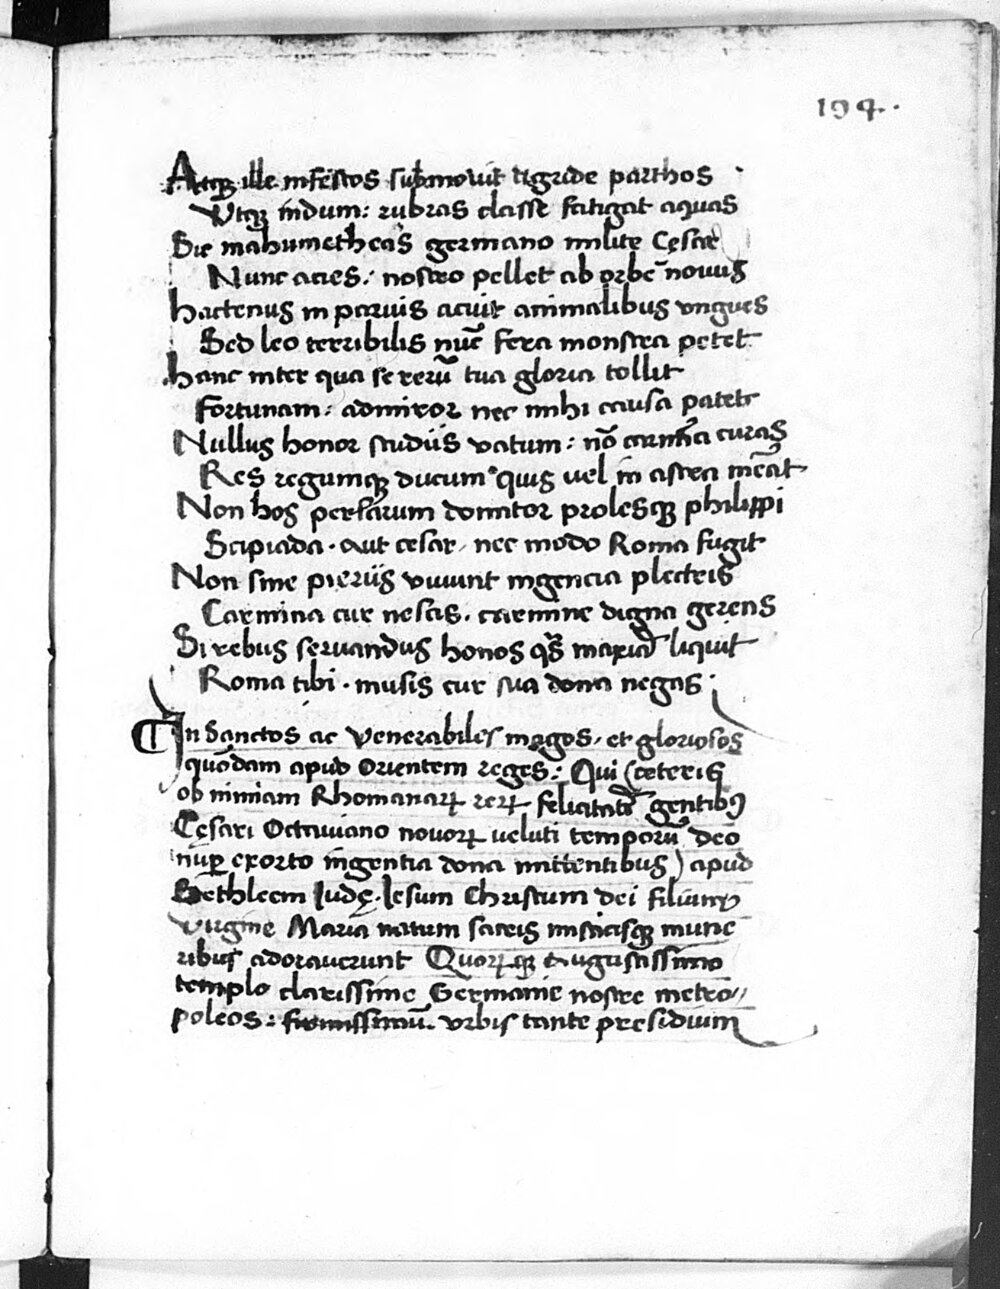 194.
Atqꝫ ille infestos submouit tigride parthos
Vtqꝫ indum: rubras classe fatigat aquas
Sic mahumetheas germano milite Cęsar
Nunc acies: nostro pellet ab orbe nouus
hactenus in paruis acuit animalibus vngues
Sed leo terribilis nūc fera monstra petet
hanc inter qua se rerū tua gloria tollit
fortunam: admiror nec mihi causa patet
Nullus honor studiis vatum: nō carmīa curas
Res regumqꝫ ducum quis vel in astra
Non hos persarum domitor prolesqꝫ philippi
Scipiada. aut cesar, nec modo Roma fugit
Non sine pieriis viuunt ingencia plectris
Carmina cur nescis. carmine digna gerens
Si rebus seruandus honos liquit
Roma tibi. musis cur sua dona negas.
In Sanctos ac Venerabiles magos. et gloriosos
quosdam apud Orientem reges: Qui (ceteris
ob nimiam Rhomanaꝝ reꝝ felicitatē gentibꝰ
Cęsari Octauiano nouoꝝ veluti temporū deo
nuꝑ exorto ingentia dona mittentibus) apud
Bethleem Iudę. Iesum Christum dei filium
virgine Maria natum sacris misticisqꝫ mune
ribus adorauerunt Quoꝝqꝫ Augustissimo
templo clarissime Germanie nostre metro//
poleos: firmissimū. vrbis tante presidium